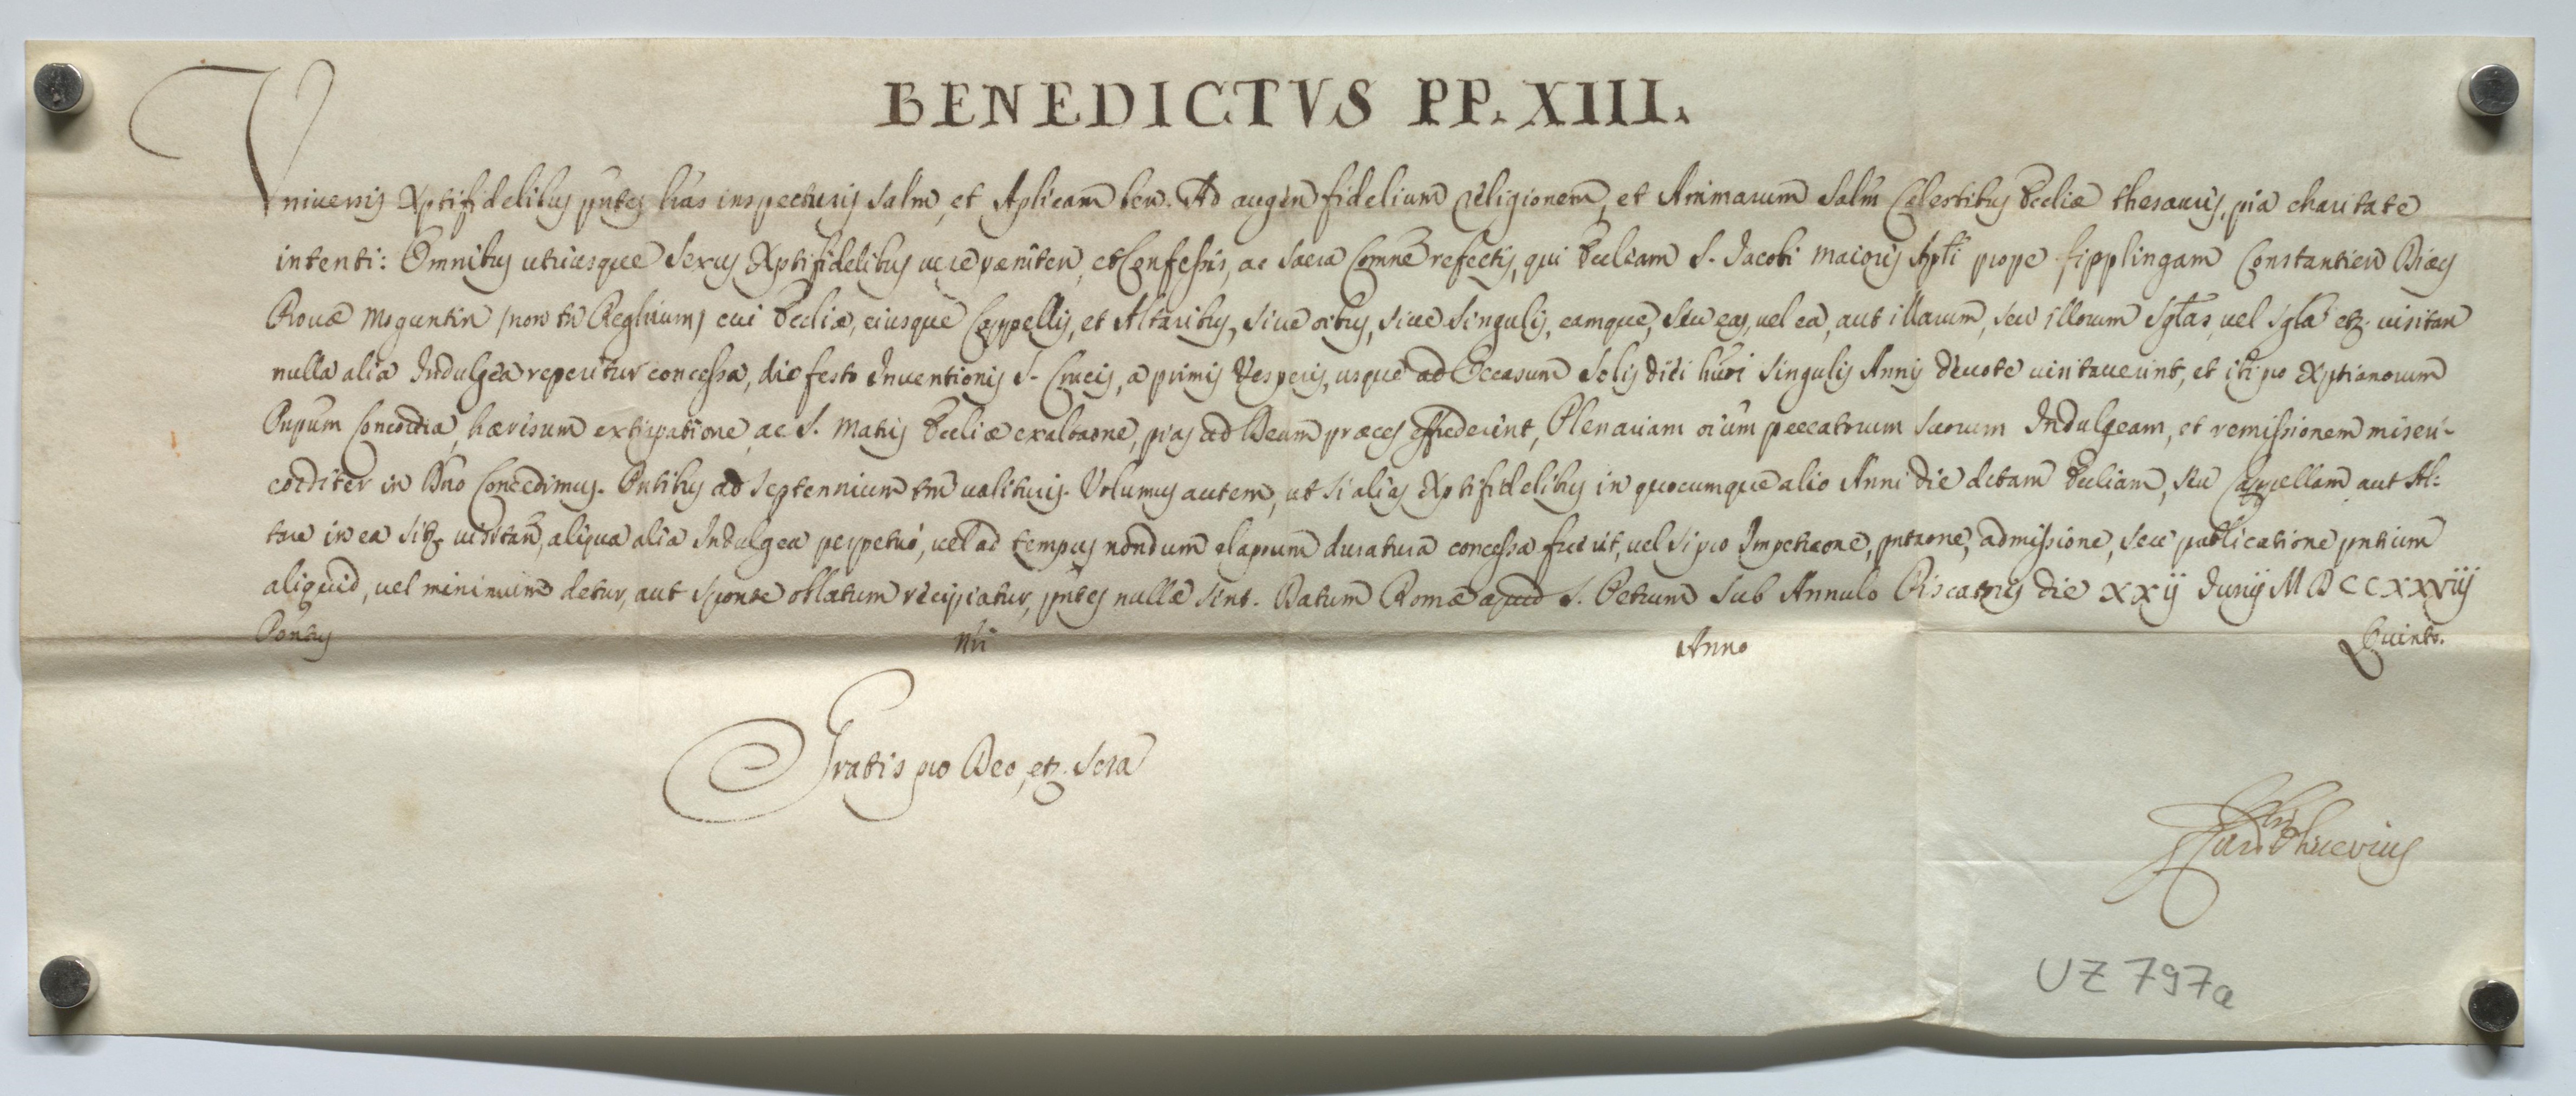 BENEDICTVS PP. XIII.
Vniversis Xptifidelibus pntes lras inspecturis Salm, et Aplicam ben. Ad augen fidelium religionem, et Animarum Salm Celestibus Eccliæ thesauris, pia charitate
intenti: Omnibus utriusque Sexus Xptifidelibus vere pæniten, et Confessis, ac Sacra Comne refectis, qui Eccliam S. Jacobi Maioris Apli prope sipplingam Constantien Diæcs
Provæ Moguntin /non tn Reglarium/ cui Eccliæ, eiusque Cappellis, et Altaribus, sive oibus, sive singulis, eamque, seu eas, vel ea, aut illarum, seu illorum sglas, vel sgla etz. visitan
nulla alia Indulgea reperitur concessa, die festo Inventionis S. Crucis, a primis Vesperis, usque ad Occasum Solis diei huri singulis Annis devote visitaverint, et ibi pro Xptianorum
Pnpum Concordia, hæresum extirpatione, ac S. Matris Eccliæ exaltaone, pias ad Deum præces effuderint, Plenariam oium peccatorum suorum Indulgeam, et remissionem miseri-
corditer in Dno Concedimus. Pntibus ad septennium tm valituris. Volumus autem, ut si alias Xptifidelibus in quocumque alio Anni die dctam Eccliam, seu Cappellam aut Al:
tare in ea sitz visitan, aliqua alia Indulgea perpetuò, vel ad tempus nondum elapsum duratura concessa fuerit, vel si pro Impetraone, pntaone, admissione, seu publicatione pntium
aliquid, vel minimum detur, aut sponte oblatum recipiatur, pntes nullæ sint. Datum Romæ apud S. Petrum sub Annulo Piscatoris die XXij Junij MDCCXXViij
Pontus Nri Anno Quinto.
Gratis pro Deo, etz. Scra
UZ 797a